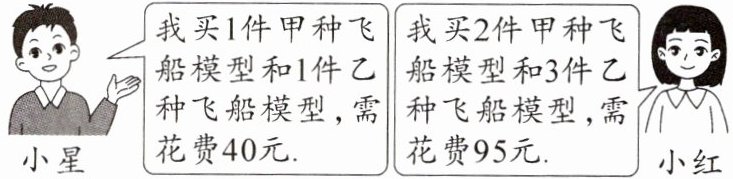 我买1件甲种飞
船模型和1件乙
种飞船模型,需
花费40元.
小星
我买2件甲种飞
船模型和3件乙
种飞船模型,需
花费95元.
小红